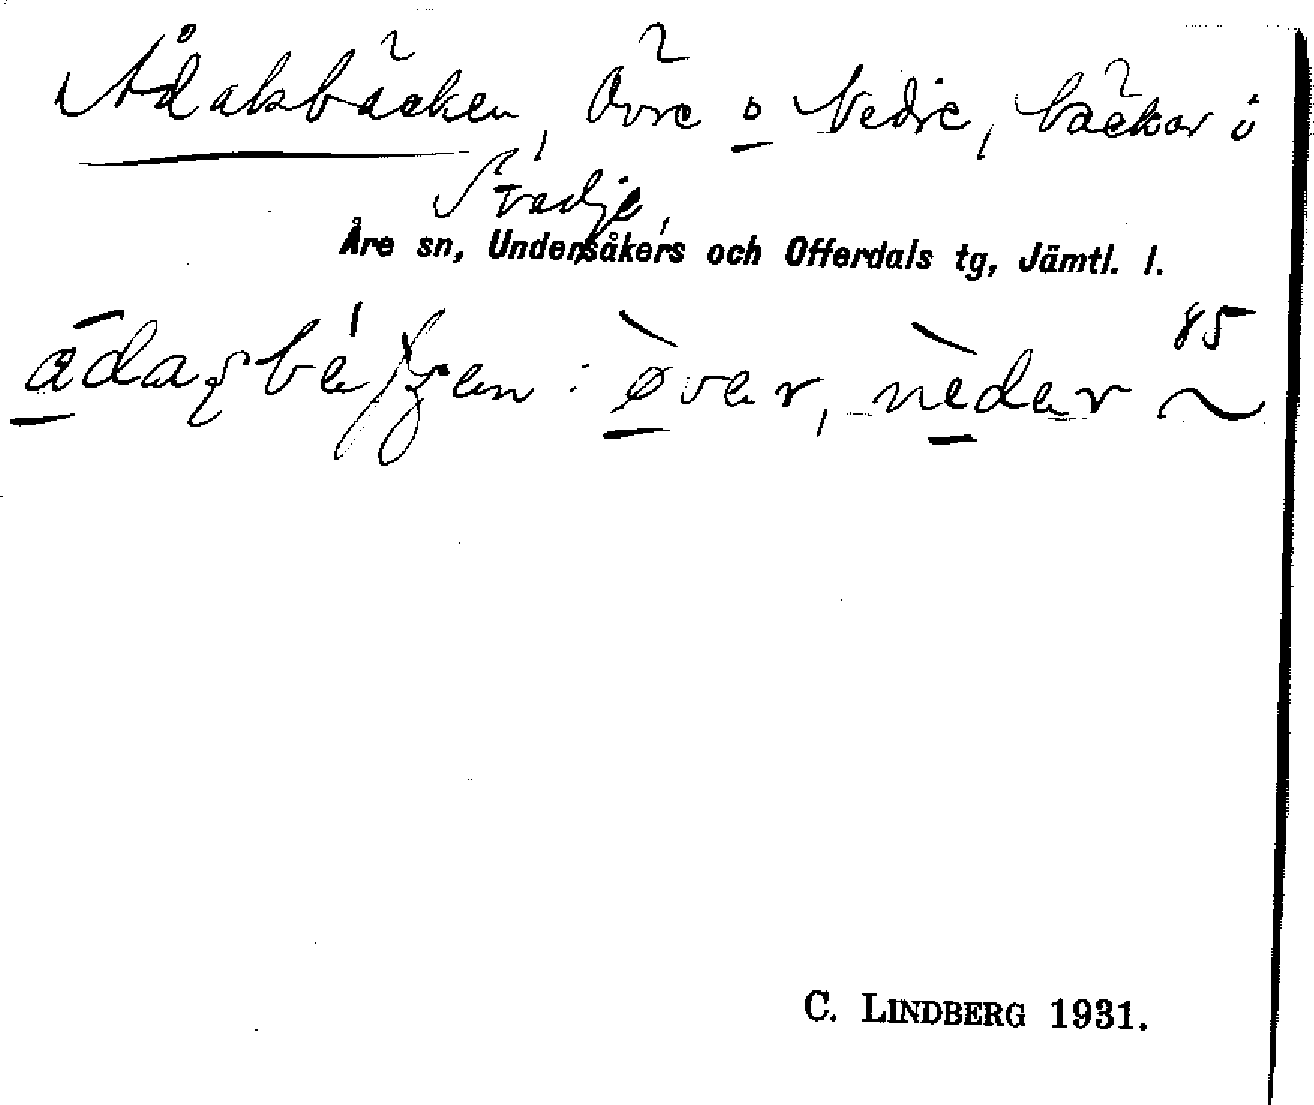 Ådakbäcken, Övre o Nedre, bäckar i
Stadje,
Åre sn, Undersåkers och Offerdals tg, Jämtl. l.
85
: øvar, nedar ~
C. LINDBERG 1931.